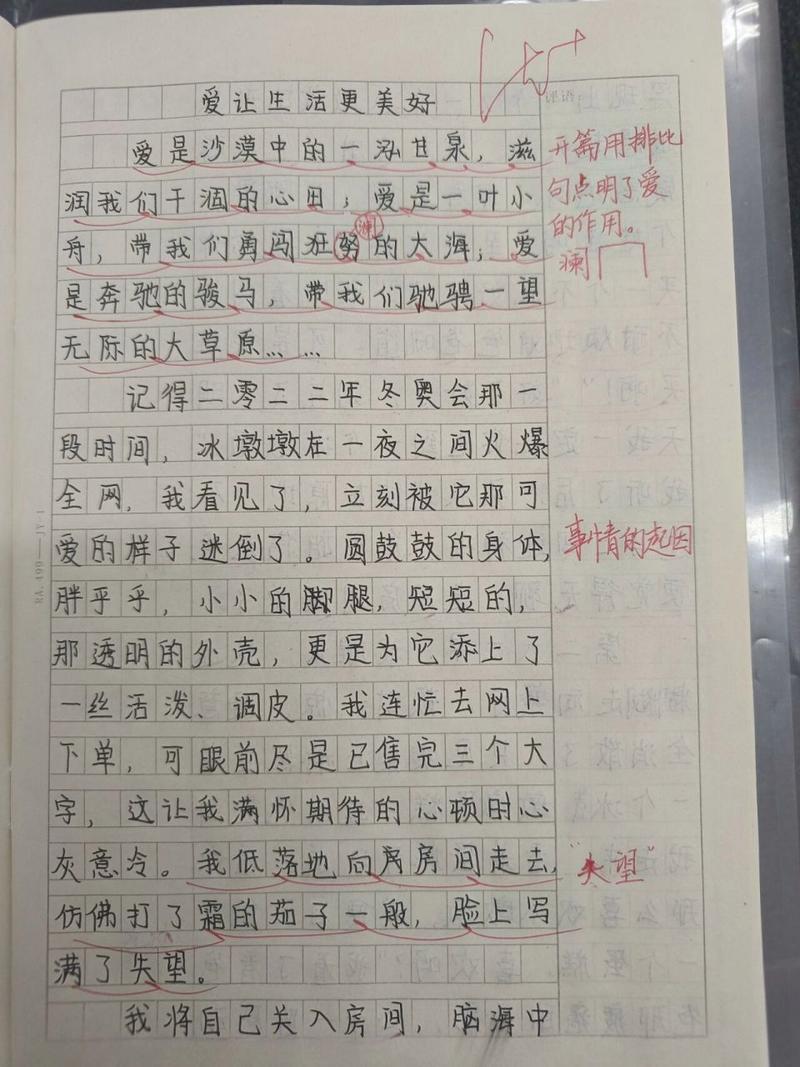 爱让生活更美好
评语
爱是沙漠中的一泓甘泉，滋
润我们干涸的心田；爱是一叶小
舟，带我们勇闯狂努的大海；爱
澜
是奔驰的骏马，带我们驰骋一望
无际的大草原……
开篇用排比
句点明了爱
的作用。
澜
记得二零二二年冬奥会那一
段时间，冰墩墩在一夜之间火爆
全网，我看见了，立刻被它那可
爱的样子迷倒了。圆鼓鼓的身体，
事情的起因
胖乎乎，小小的脚腿，短短的，
那透明的外壳，更是为它添上了
一丝活泼、调皮。我连忙去网上
下单，可眼前尽是已售完三个大
字，这让我满怀期待的心顿时心
灰意冷。我低落地向房间走去，
"失望"
仿佛打了霜的茄子一般，脸上写
满了失望。
我将自己关入房间，脑海中